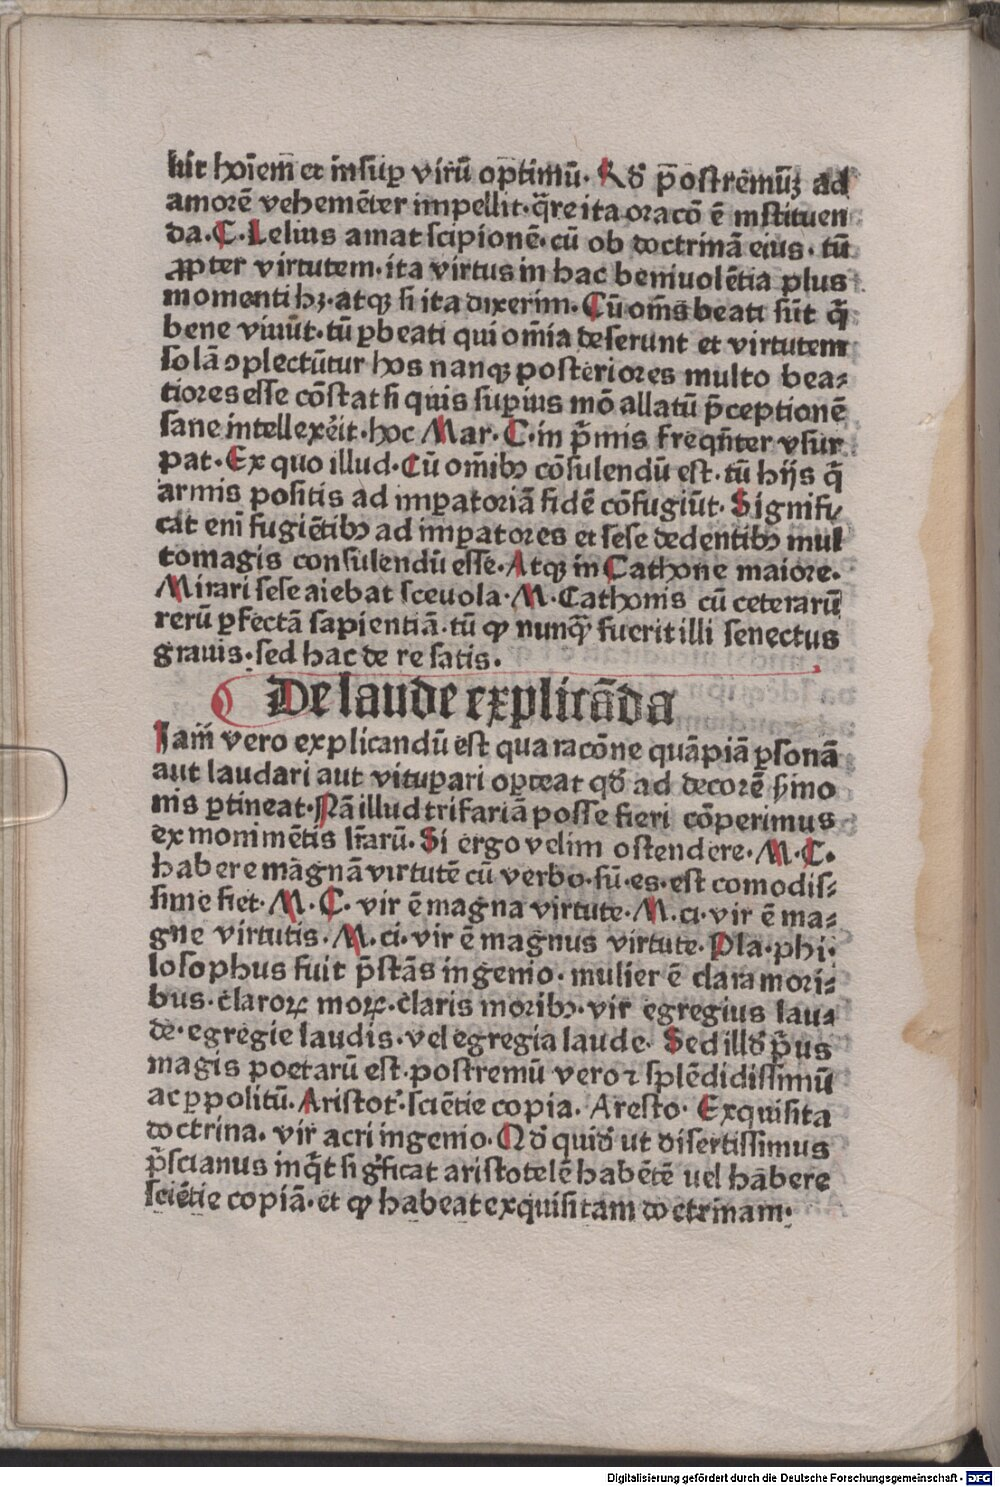 lur hoīem et insuꝑ virū optimū. Ꝙd̄ p̄ostremūꝫ ad
amorē vehemēter impellit. q̄re ita oracō ē instituen
da. C. Lelius amat scipionē. cū ob doctrinā eius. tū
ꝓpter virtutem. ita virtus in hac beniuolētia plus
momenti hꝫ. atqꝫ si ita dixerim. Cū om̄s beati sūt q̄
bene viuūt. tū ꝑbeati qui om̄ia deserunt et virtutem
solā ↄplectūtur hos nanqꝫ posteriores multo bea⸗
tiores esse cōstat si quis suꝑius mō allatū p̄ceptionē
sane intellexe᷑it. hoc Mar. C. in p̄mis freqn̄ter vsur
pat. Ex quo illud. Cū om̄ibꝫ cōsulendū est. tū hijs q̄
armis positis ad imꝑatoriā fidē cōfugiūt. Signifi⸗
cat eni᷑ fugiētibꝫ ad imꝑatores et sese dedentibꝫ mul
tomagis consulendū esse. Atqꝫ in Cathone maiore.
Mirari sese aiebat sceuola. M. Cathonis cū ceterarū
rerū ꝑfectā sapientiā. tū ꝙ nunqꝫ̄ fuerit illi senectus
grauis. sed hac de re satis.
De laude explicāda
Iam̄ vero explicandū est qua racōne quāpiā ꝑsonā
aut laudari aut vituꝑari oꝑteat qd̄ ad decorē s̄mo
nis ꝑtineat. Nā illud trifariā posse fieri cōperimus
ex monimētis lr̄arū. Si ergo velim ostendere. M. C.
habere māgnā virtutē cū verbo. sū. es. est comodis⸗
sime fiet. M. C. vir ē magna virtute. M. ci. vir ē ma⸗
gne virtutis. M. ci. vir ē magnus virtute. Pla. phi.
losophus fuit p̄stās ingenio. mulier ē clara mori⸗
bus. claroꝝ moꝝ. claris moribꝫ. vir egregius lau⸗
de. egregie laudis. vel egregia laude. Sed illd̄ p̄us
magis poetarū est. postremū vero ⁊ splēdidissimū
ac ꝑpolitū. Aristot᷑. sciētie copia. Aresto. Exquisita
doctrina. vir acri ingenio. Qd̄ quid᷑ ut disertissimus
p̄scianus inq̄t sig᷑ficat aristotelē habētē uel habere
sciētie copiā. et ꝙ habeat exquisitam doctrinam.
Digitalisierung gefördert durch die Deutsche Forschungsgemeinschaft - DFG